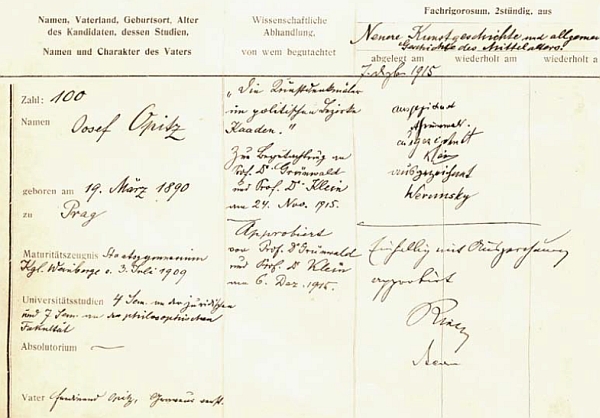 Namen, Vaterland, Geburtsort, Alter
des Kandidaten, dessen Studien,
Namen und Charakter des Vaters
Wissenschaftliche
Abhandlung,
von wem begutachtet
Fachrigorosum, 2stündig, aus
Neuere Kunstgeschichte und allgemeine
Geschichte des Mittelalters.
abgelegt am
wiederholt am
wiederholt a
7. Dezbr. 1915
Zahl: 100
Namen
Josef Opitz
geboren am 19. März 1890
zu Prag
Maturitätszeugnis Staatsgymnasium
Kgl. Weinberge v. 3. Juli 1909
Universitätsstudien 4 Sem. an der juridischen
und 7 Sem. an der philosophischen
Fakultät
Absolutorium —
Vater Ferdinand Opitz, Graveur
„Die Kunstdenkmäler
im politischen Bezirke
Kaaden."
Zur Begutachtung an
Prof. Dr Grünwald
und Prof. Dr Klein
am 24. Nov. 1915.
Approbiert
von Prof. Dr Grünwald
und Prof. Dr Klein
am 6. Dez. 1915.
ausgezeichnet
Grünwald.
ausgezeichnet
Klein
ausgezeichnet
Werunsky
Einhellig mit Auszeichnung
approbiert